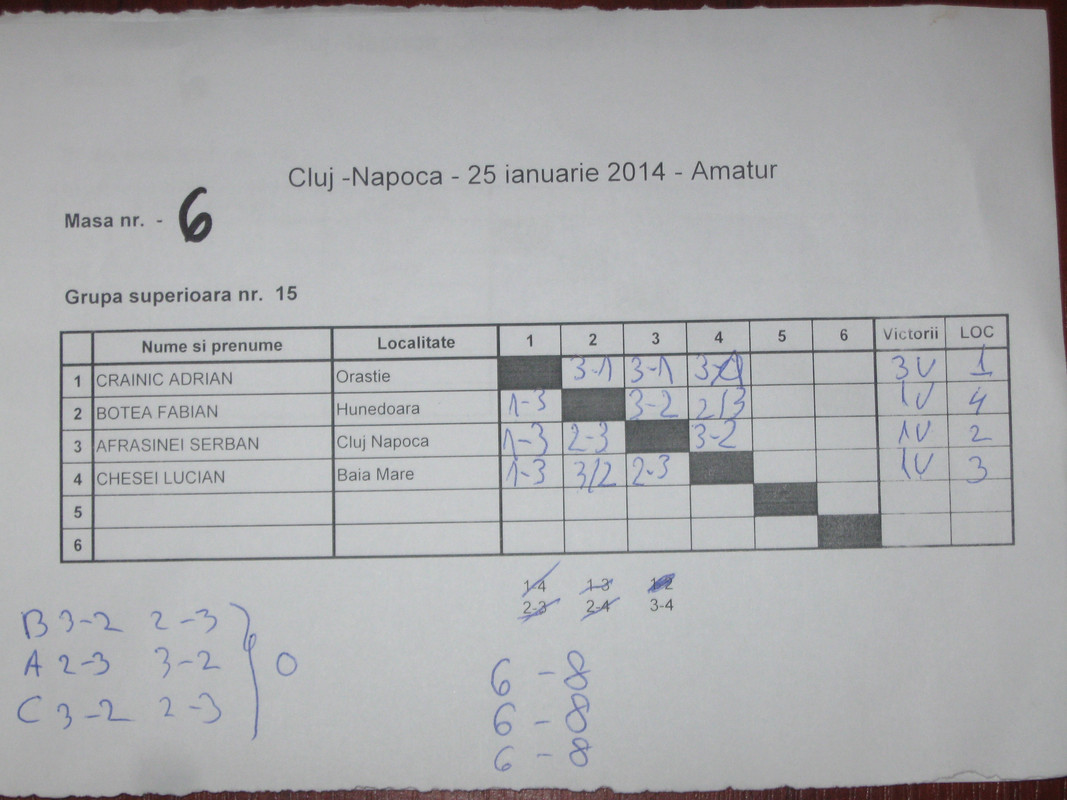 Cluj -Napoca - 25 ianuarie 2014 - Amatur
Masa nr. - 6
Grupa superioara nr. 15
Nume si prenume Localitate 1 2 3 4 5 6 Victorii LOC
1 CRAINIC ADRIAN Orastie 3-1 3-1 3-1 3V 1
2 BOTEA FABIAN Hunedoara 1-3 3-2 2/3 1V 4
3 AFRASINEI SERBAN Cluj Napoca 1-3 2-3 3-2 1V 2
4 CHESEI LUCIAN Baia Mare 1-3 3/2 2-3 1V 3
5
6
1-4 1-3 1-2
2-3 2-4 3-4
B 3-2 2-3
A 2-3 3-2 0
C 3-2 2-3
6 - 8
6 - 8
6 - 8